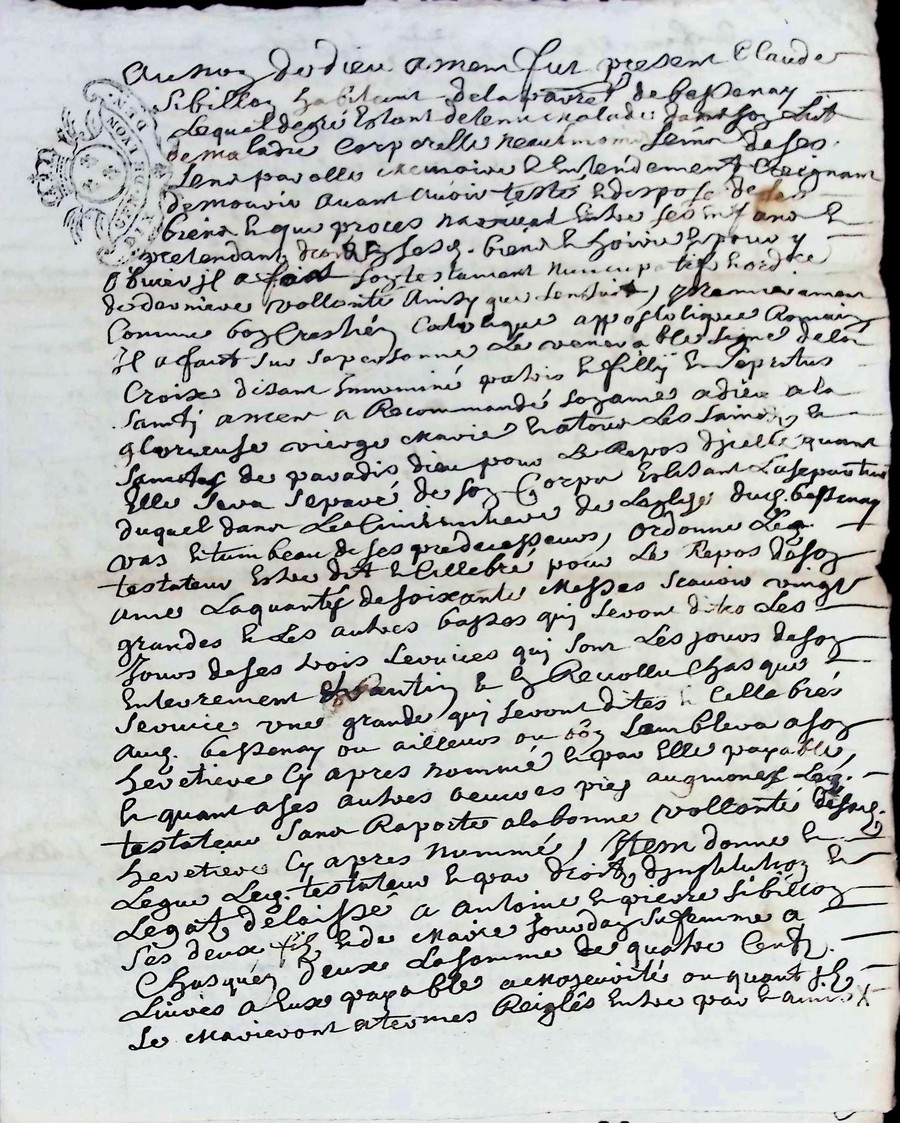 Au nom de dieu amen fut present Claude
Sibillon habitant de la parre de bessenay
Lequel de gré Estant detenu malade dans son Lit
de maladie Corporelle neaulmoins Sain de ses
Sens parolle memoire et Entendement Creignant
de mourir avant avoir testé et disposé de ses
biens et que proces ne Entre ses Enfans et
pretendant droit En sesd. biens et hoirie et pour y
obvier il a fait son testament nuncupatif et ordce
de derniere vollonté Ainsy que sensuit, premierement
Comme bon Crestien Catolique appostolique Romain
Il a fait sur sa personne Le venerable signe de la
Croix disant In nominé patris et fillÿ Et Sepritus
Santÿ amen a Recommandé son ame a dieu a la
glorieuse vierge Marie Et a tous Les Saincts et
Sainctes de paradis dieu pour Le Repos dicelle quant
Elle Sera Separé de son Corps Eslisant La sepulture
duquel dans Le Cimintiere de Leglize dud. bessenay
vas Et tumbeau de ses predecesseurs, ordonne Led.
testateur Estre dit et Cellebré pour Le Repos de son
ame La quantité de soixante Messes scavoir vingt
grandes et Les autres basses quj seront dites Les
Jours de ses trois services quj sont Les jours de son
Enterrement quarantin et En Revollu Chasque
service une grande quj seront dites et Cellebrés
Aud. bessenay ou ailleurs ou bon Semblera a son
heretiere Cy apres nommé et par Elle payable,
Et quant a ses autres oeuvres pies augmones Led.
testateur Sans Raporte a la bonne vollonté de sad.
heretiere Cy apres nommé, Item donne et
Legue Led. testateur et par droit dinstitution et
Legat delaissé a Antoine et pierre Sibillon
Ses deux filz et de Marie Jourdan sa femme a
Chasquen deux La somme de quatre Centz
Livres a Eux payable a Majeurité ou quant ilz
Se Marieront a termes Reiglés Entre par et amis